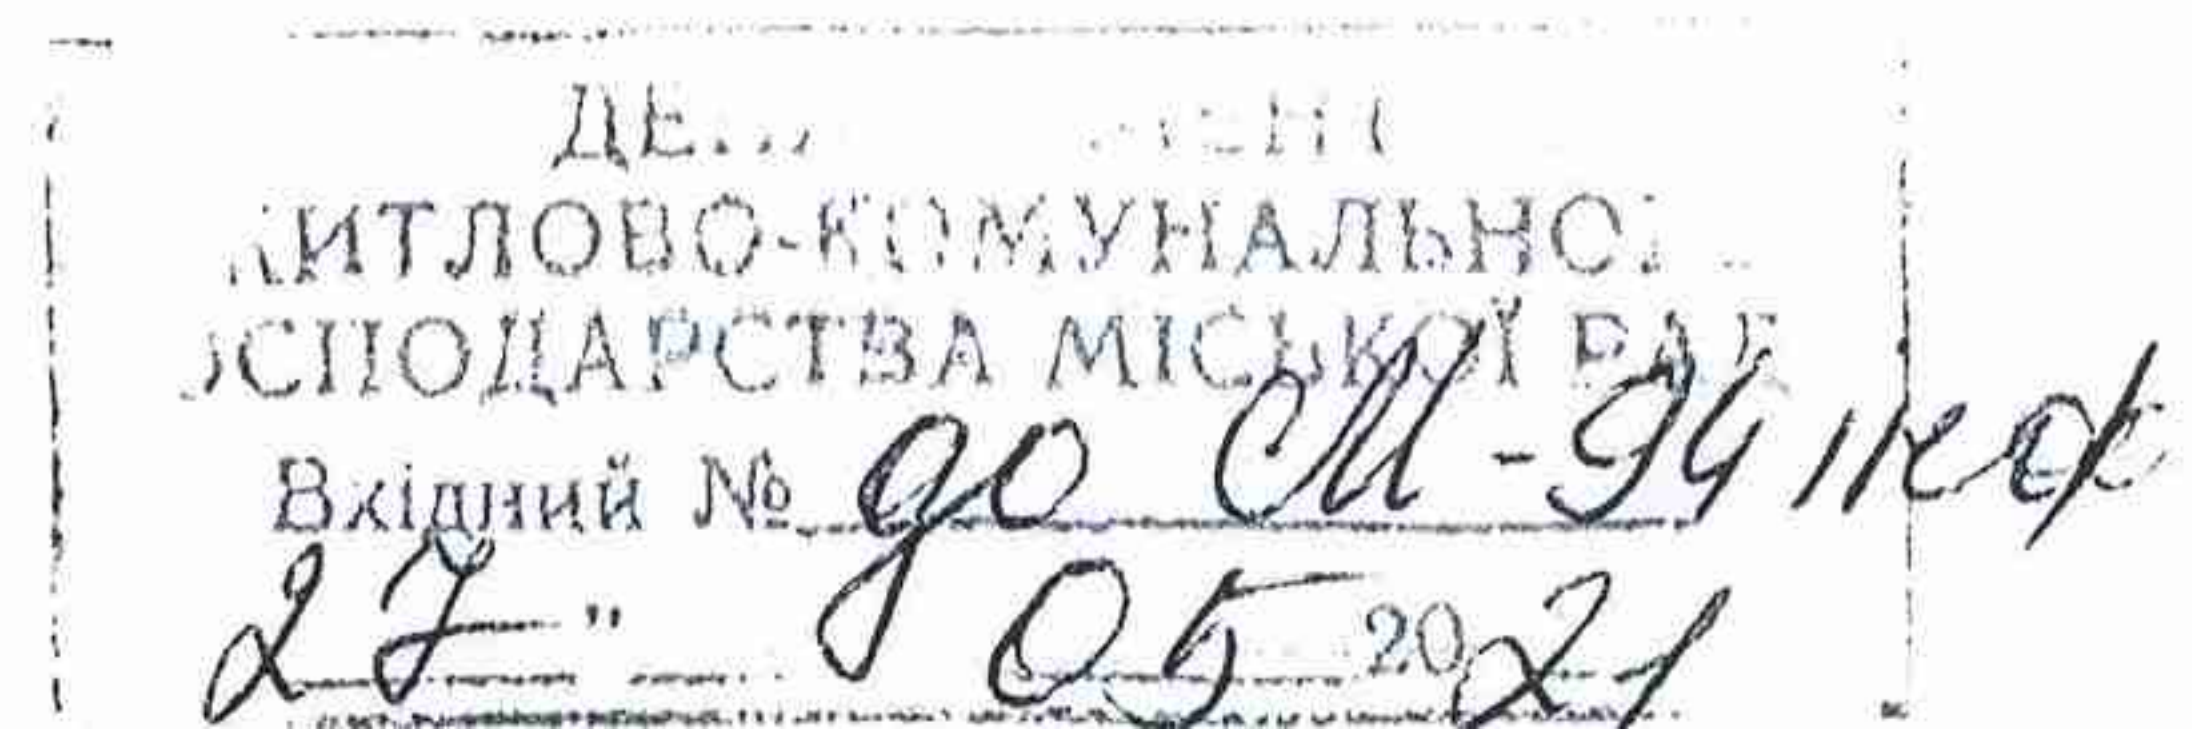 ДЕ
ИТЛОВО-КОМУНАЛЬНО
ОСПОДАРСТВА МІСЬКОЇ РАД
Вхідний № до М-94
27 " 05 2021